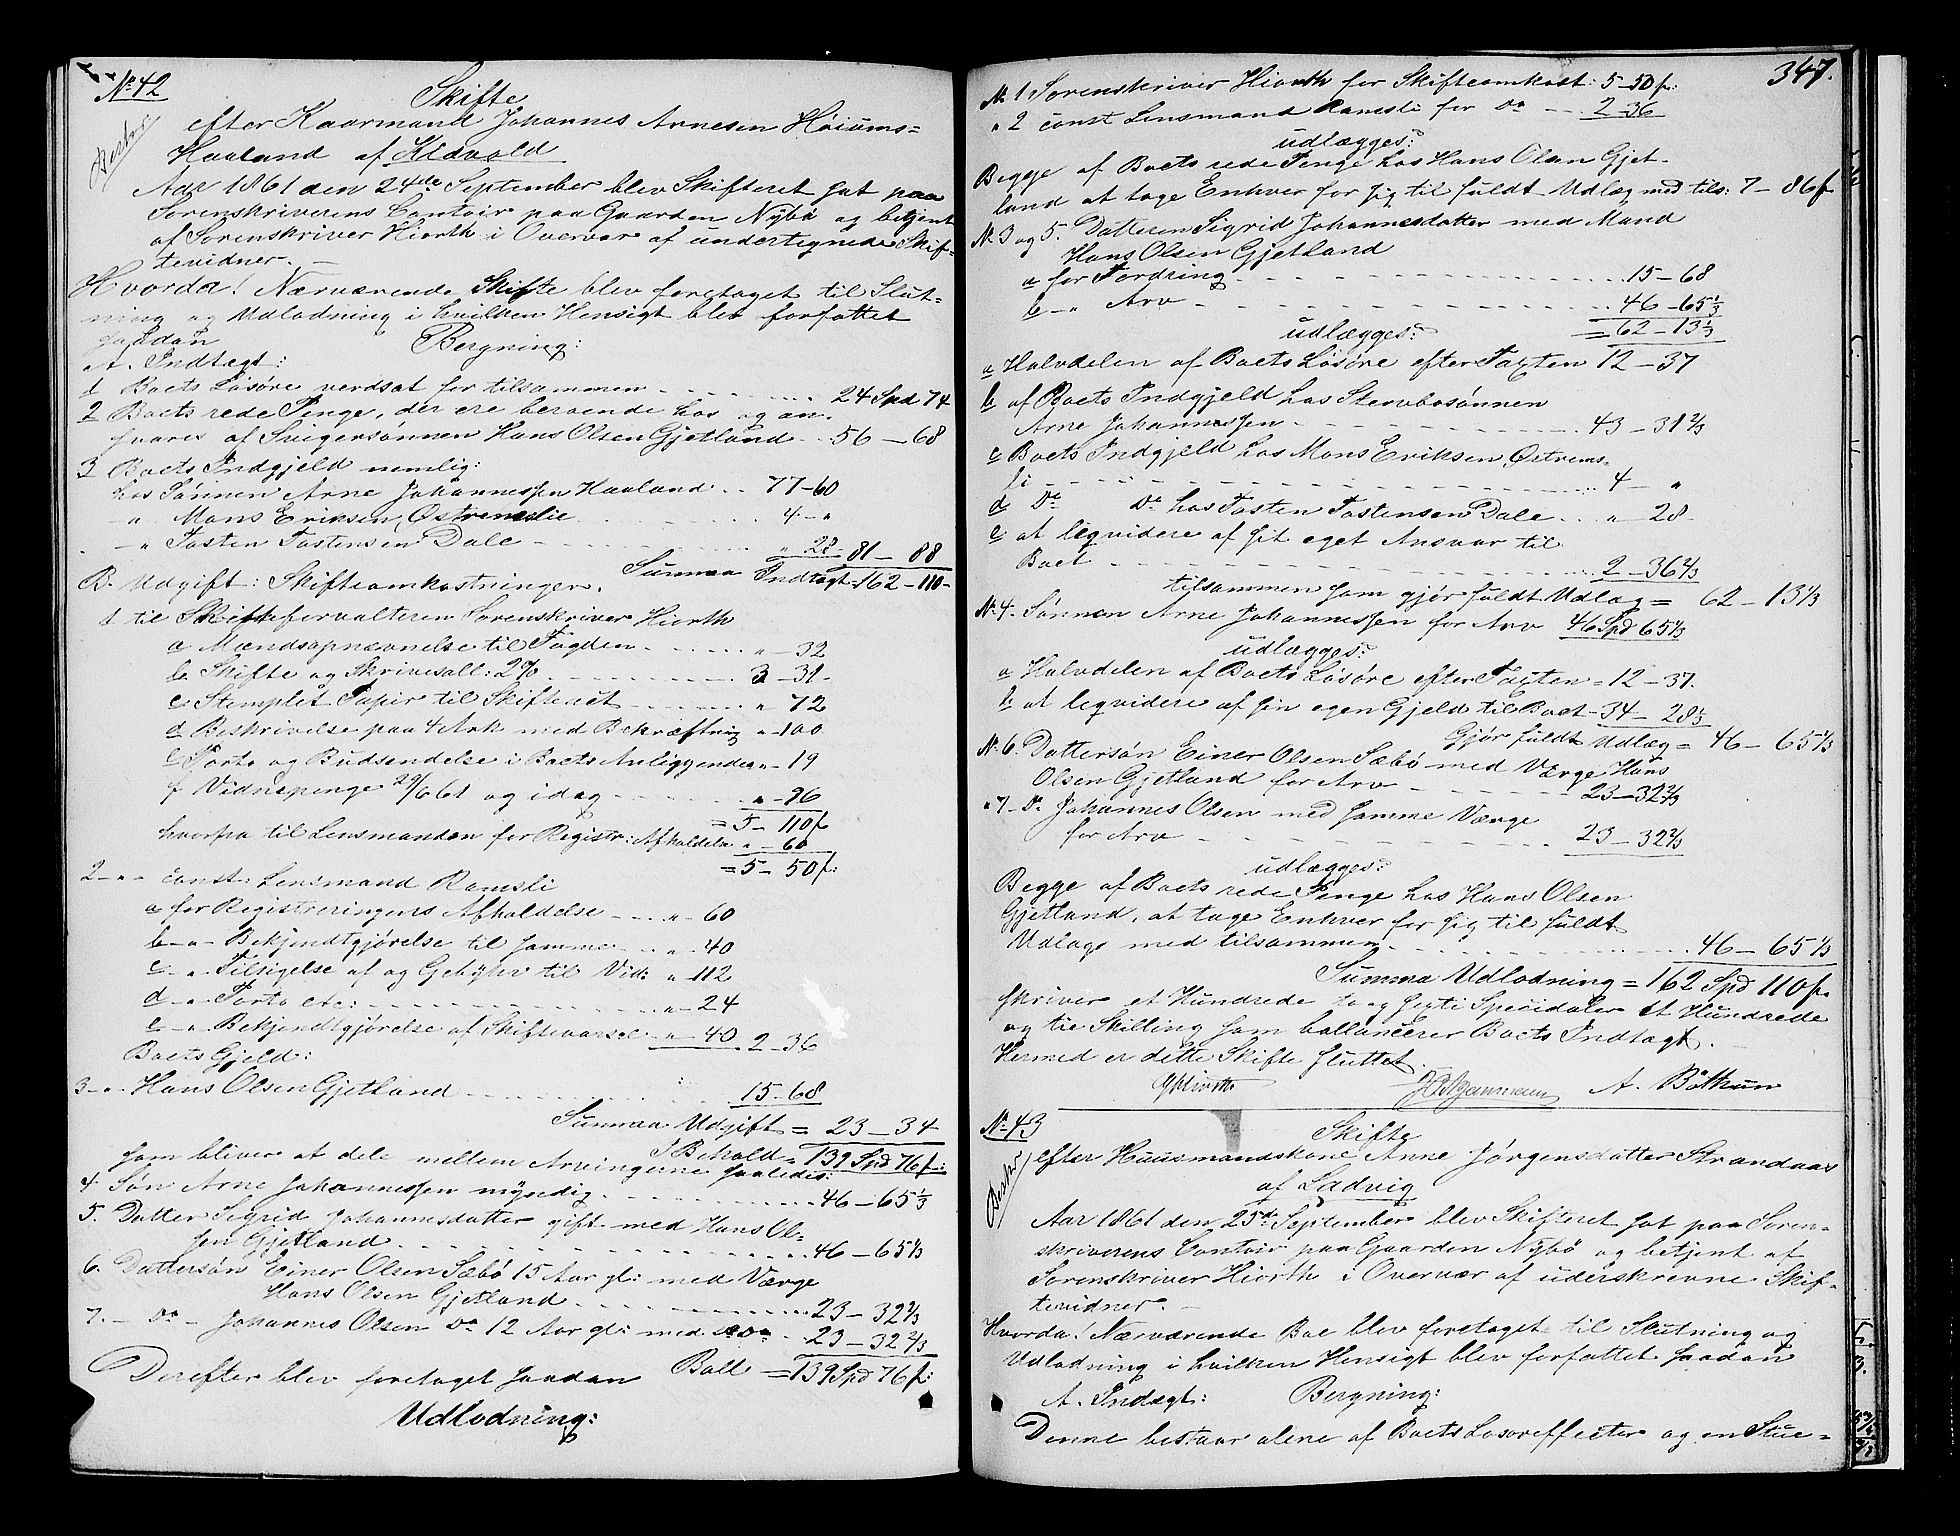 No 42
Skifte
efter Kaarmand Johannes Arnesen Høiums=
Haaland af Klævold
Aar 1861 den 24de September blev Skifteret sat paa
Sorenskriverens Contoir paa Gaarden Nybø og betjent
af Sorenskriver Hiorth i Overvær af undertegnede Skif=
tevidner. —
Hvorda! Nærværende Skifte blev foretaget til Slut=
ning og Udlodning i hvilken Hensigt blev forfattet
saadan
Beregning:
A. Indtægt:
1 Boets Løsøre verdsat for tilsammen 24 Spd 74
2 Boets rede Penge, der ere beroende hos og an=
svares af Svigersønnen Hans Olsen Gjetland 56 — 68
3 Boets Indgjeld nemlig:
hos Sønnen Arne Johannessen Haaland 77—60
— " Mons Eriksen Østremslie 4 — "
— " Tosten Tostensen Dale " 28 81 — 88
Summa Indtægt = 162 — 110
B. Udgift: Skifteomkostninger.
1 til Skifteforvalteren Sorenskriver Hiorth
a Mændsopnævnelse til Fogden " — 32
b Skifte og Skrivesall: 2% 3 — 31
c Stemplet Papir til Skifteret " 72
d Beskrivelse paa 4 Ark med Bekræftning " —100
e Porto og Budsendelse i Boets Anliggender " — 19
f Vidnepenge 29/6 61 og idag " — 96
= 5 — 110 s
hvorfra til Lensmanden for Registr: Afholdelse " — 60
= 5 — 50 s:
2 — " — const: Lensmand Ramsli
a for Registreringens Afholdelse " — 60
b — " — Bekjendtgjørelse til samme " — 40
c — " Tilsigelse af og Gebyhr til Vid: " — 112
d — " Porto etc: " — 24
e — " Bekjendtgjørelse af Skiftevarsel " — 40 2 — 36
Boets Gjeld:
3 — " Hans Olsen Gjetland 15 — 68
Summa Udgift = 23 — 34
I Behold = 139 Spd 76 s:
som bliver at dele mellem Arvingerne saaledes:
4. Søn Arne Johannessen myndig 46 — 65 1/3
5. Datter Sigrid Johannesdatter gift med Hans Ol=
sen Gjetland 46 — 65 1/3
6. Dattersøn Einer Olsen Sæbø 15 Aar gl: med Værge
Hans Olsen Gjetland 23 — 32 2/3
7. — Do — Johannes Olsen Do 12 Aar gl: med Do 23 — 32 2/3
Ball = 139 Spd 76 s:
Derefter blev foretaget saadan
Udlodning:
347.
No 1 Sorenskriver Hiorth for Skifteomkost: 5 — 50 s:
" 2 const Lensmand Ramsli for Do 2 — 36
udlægges:
Begge af Boets rede Penge hos Hans Olsen Gjet=
land at tage Enhver for sig til fuldt Udlæg med tils: 7 — 86 s
No 3 og 5. Datteren Sigrid Johannesdatter med Mand
Hans Olsen Gjetland
a for Fordring 15 — 68
b — " Arv 46 — 65 1/3
= 62 — 13 1/3
udlægges:
a Halvdelen af Boets Løsøre efter Taxten 12 — 37
b af Boets Indgjeld hos Stervbosønnen
Arne Johannessen 43 — 31 2/3
c Boets Indgjeld hos Mons Eriksen Østrems=
li 4 — "
d Do Do hos Tosten Tostensen Dale " — 28
e at liqvidere af sit eget Ansvar til
Boet 2 — 36 2/3
tilsammen som gjør fuldt Udlæg = 62 — 13 1/3
No 4. Sønnen Arne Johannessen for Arv 46 Spd 65 1/3
udlægges:
a Halvdelen af Boets Løsøre efter Taxten = 12 — 37.
b at liqvidere af sin egen Gjeld til Boet — 34 — 28 1/3
Gjør fuldt Udlæg = 46 — 65 1/3
No 6. Dattersøn Einer Olsen Sæbø med Værge Hans
Olsen Gjetland for Arv 23 — 32 2/3
" 7 — Do Johannes Olsen med samme Værge
for Arv 23 — 32 2/3
udlægges:
Begge af Boets rede Penge hos Hans Olsen
Gjetland, at tage Enhver for sig til fuldt
Udlæg med tilsammen 46 — 65 1/3
Summa Udlodning = 162 Spd 110 s.
skriver et Hundrede to og sexti Speciedaler et Hundrede
og tie Skilling som ballancerer Boets Indtægt.
Hermed er dette Skifte sluttet.
GHiorth A. Bøthun
No 43
Skifte
efter Huusmandskone Anne Jørgensdatter Strandaas
af Ladvig
Aar 1861 den 25de September blev Skifteret sat paa Soren=
skriverens Contoir paa Gaarden Nybø og betjent af
Sorenskriver Hiorth i Overvær af uderskrevne Skif=
tevidner. —
Hvorda! Nærværende Boe blev foretaget til Slutning og
Udlodning i hvilken Hensigt blev forfattet saadan
Beregning:
A. Indtægt:
Denne bestaar alene af Boets Løsøreffecter og en Stue=